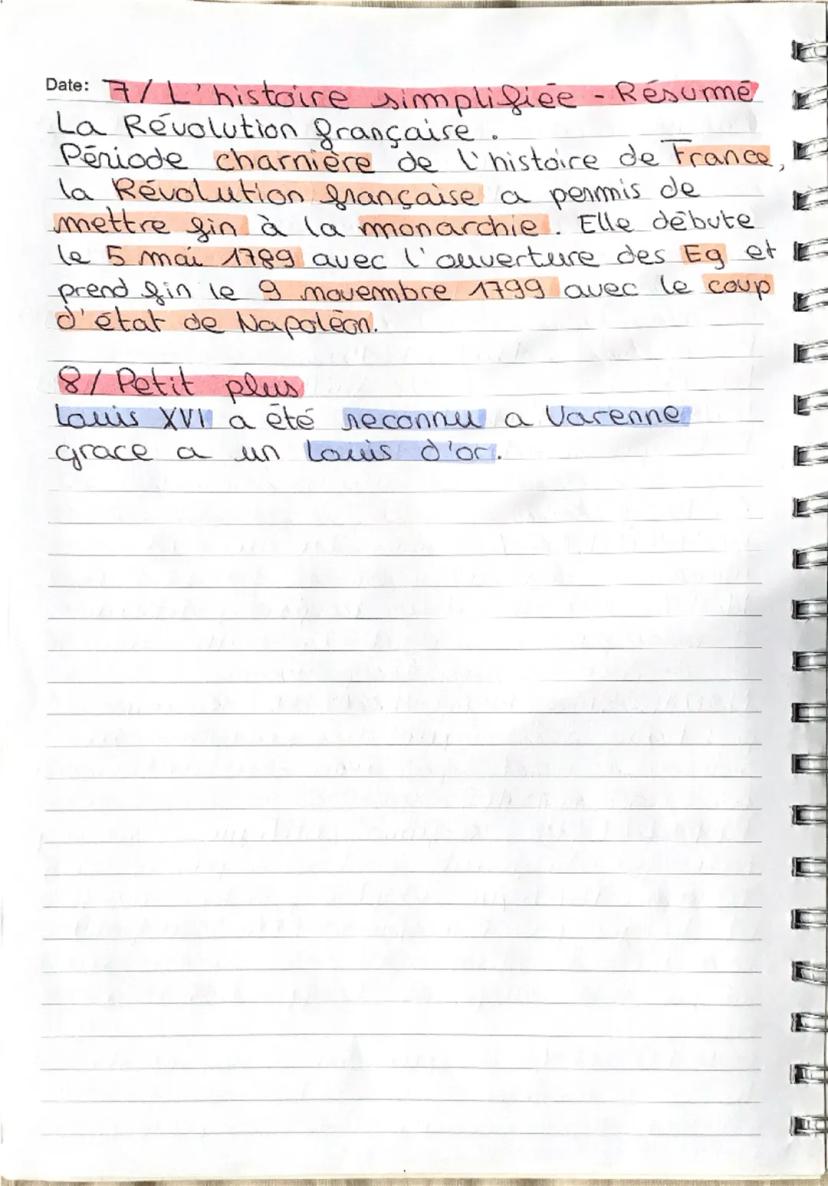 Date: 7/ L'histoire simplifiée - Résumé
La Révolution française.
Période charnière de l'histoire de France,
la Révolution française a permis de
mettre fin à la monarchie. Elle débute
le 5 mai 1789 avec l'ouverture des Eg et
prend fin le 9 novembre 1799 avec le coup
d'état de Napoléon.
8/ Petit plus
Louis XVI a été reconnu a Varenne
grace a un Louis d'or.